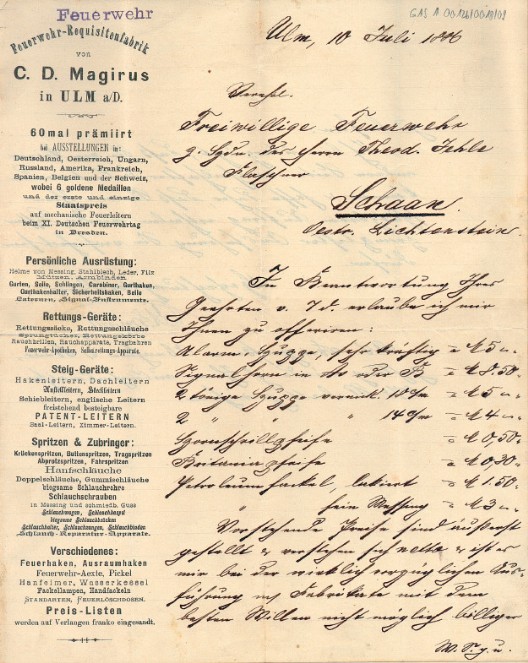 Feuerwehr
GAS A 00126/0019/01
Feuerwehr-Requisitenfabrik
von
C. D. Magirus
in ULM a/D.
60mal prämiirt
bei AUSSTELLUNGEN in:
Deutschland, Oesterreich, Ungarn,
Russland, Amerika, Frankreich,
Spanien, Belgien und der Schweiz,
wobei 6 goldene Medaillen
und der erste und einzige
Staatspreis
auf mechanische Feuerleitern
beim XI. Deutschen Feuerwehrtag
in Dresden.
Persönliche Ausrüstung:
Helme von Messing, Stahlblech, Leder, Filz
Mützen, Armbinden
Gurten, Beile, Schlingen, Carabiner, Gurthaken,
Gurthakenhalter, Sicherheitshaken, Seile
Laternen, Signal-Instrumente.
Rettungs-Geräte:
Rettungssäcke, Rettungsschläuche
Sprungtücher, Rettungskörbe
Rauchbrillen, Rauchapparate, Tragbahren
Feuerwehr-Apotheken, Selbstrettungs-Apparate.
Steig-Geräte:
Hakenleitern, Dachleitern
Anstellleitern, Stockleitern
Schiebleitern, englische Leitern
freistehend besteigbare
PATENT-LEITERN
Baal-Leitern, Zimmer-Leitern.
Spritzen & Zubringer:
Krückenspritzen, Buttenspritzen, Tragspritzen
Abprotzspritzen, Fahrspritzen
Hanfschläuche
Doppelschläuche, Gummischläuche
biegsame Schlauchrohre
Schlauchschrauben
in Messing und schmiedb. Guss
Schlauchhaspel
Schlauchhalter, Schlauchbinden
Schlauch-Reparatur-Apparate.
Verschiedenes:
Feuerhaken, Ausraumhaken
Feuerwehr-Aexte, Pickel
Hanfeimer, Wasserkessel
Fackellampen, Handfackeln
STANDARTEN, FEUERLÖSCHDOSEN.
Preis-Listen
werden auf Verlangen franko eingesandt.
Ulm, 10 Juli 1886
Verehrl.
Freiwillige Feuerwehr
z. Hdn. des Herrn Theod. Jehle
Flaschner
Schaan
Oestr. Lichtenstein.
In Beantwortung Ihres
Geehrten v. 7 d. erlaube ich mir
Ihnen zu offeriren:
Alarm-Huppe, sehr kräftig à M 5 –
Signalhorn in à M 8.50
2 tönige Huppe vernick. 18 cm à M 5 –
2 " " " 14 cm à M 4 –
Hornschrillpfeife à M 0,50
Britaniapfeife à M 0,80
Petroleumfackel, lakirt à M 1.50
" fein Messing à M 3 –
Vorstehende Preise sind äusserst
gestellt & verstehen sich netto & ist es
mir bei der wirklich vorzüglichen Aus-
führung m. Fabrikate mit dem
besten Willen nicht möglich billiger